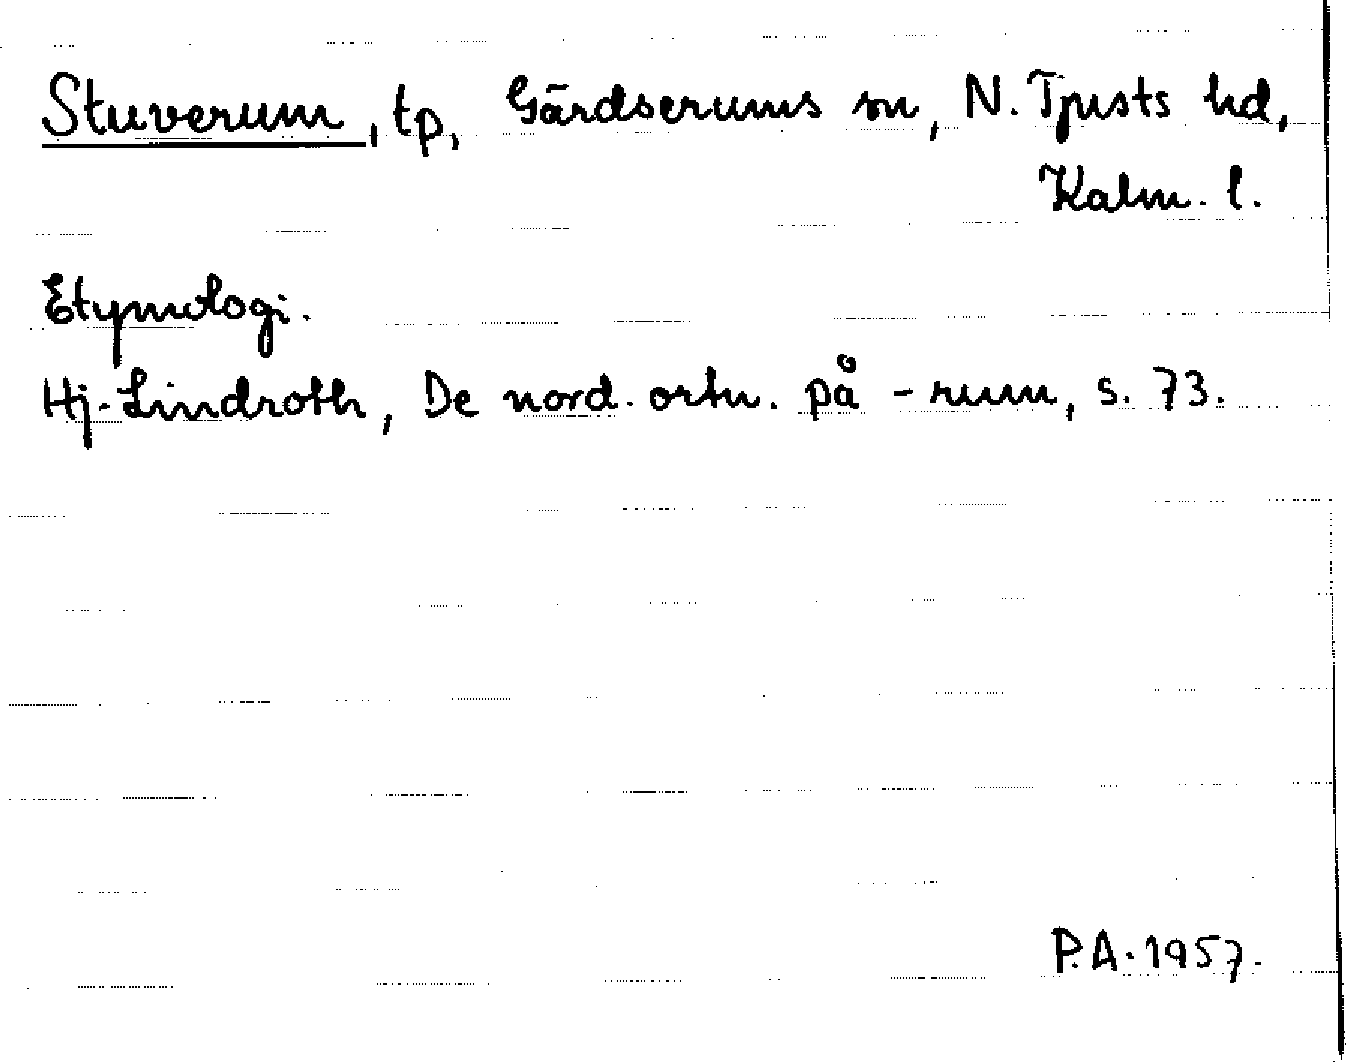 Stuverum, tp, Gärdserums sn, N. Tjusts hd,
Kalm. l.
Etymologi.
Hj. Lindroth, De nord. ortn. på -rum, s. 73.
P.A. 1957.